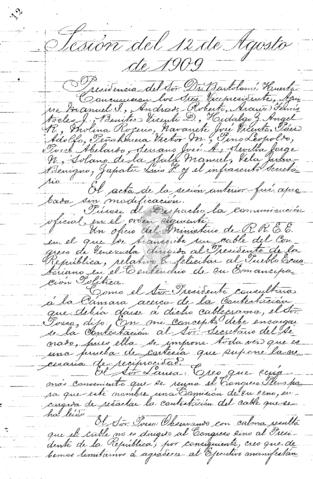 12
Sesión del 12 de Agosto
de 1909
Presidencia del Sor. Dr. Bartolomé Huerta
Concurrieron los Sres. Vicepresidente,
Manuel I., Andrade Roberto, Arauz
Benites Vicente D., Hidalgo J. Angel
R., Molina Rogerio, Navarrete José Vicente, Páez
Adolfo, Peñaherrera Víctor M., Pino Leopoldo,
Posso Abelardo, Serrano José A., Sevilla Jorge
N., Solano de la Sala Manuel, Vela
Benigno, Zapater Luis F. y el infrascrito Secreta-
rio.
El acta de la sesión anterior fué apro-
bada sin modificación.
Púsose al despacho la comunicación
oficial, en el orden siguiente:
Un oficio del Ministerio de R.R.E.E.
en el que se transcribe un cable del Con-
greso de Venezuela dirigido al Presidente de la
República, relativo a felicitar al Pueblo Ecua-
toriano en el Centenario de su Emancipa-
ción Política.
Como el Sor. Presidente consultaria
á la Cámara acerca de la contestación
que debía darse á dicho cablegrama, el Sor.
Posso, dijo: En mi concepto debe encargar-
se la contestación al Sor. Secretario del Se-
nado, pues ella se impone toda vez que es
una prueba de cortesía que supone la ne-
cesaria de reciprocidad.
El Sor. Creo que sería
más conveniente que se reuna el Congreso Pleno pa-
ra que este nombre, una Comisión de su seno, en-
cargada de redactar la contestación del cable que se
ha leído.
El Sor. Posso Observando con calma resulta
que el cable no es dirigido al Congreso sino al Presi-
dente de la República, por consiguiente, creo que de-
bemos limitarnos á agradecer al Ejecutivo manifestán